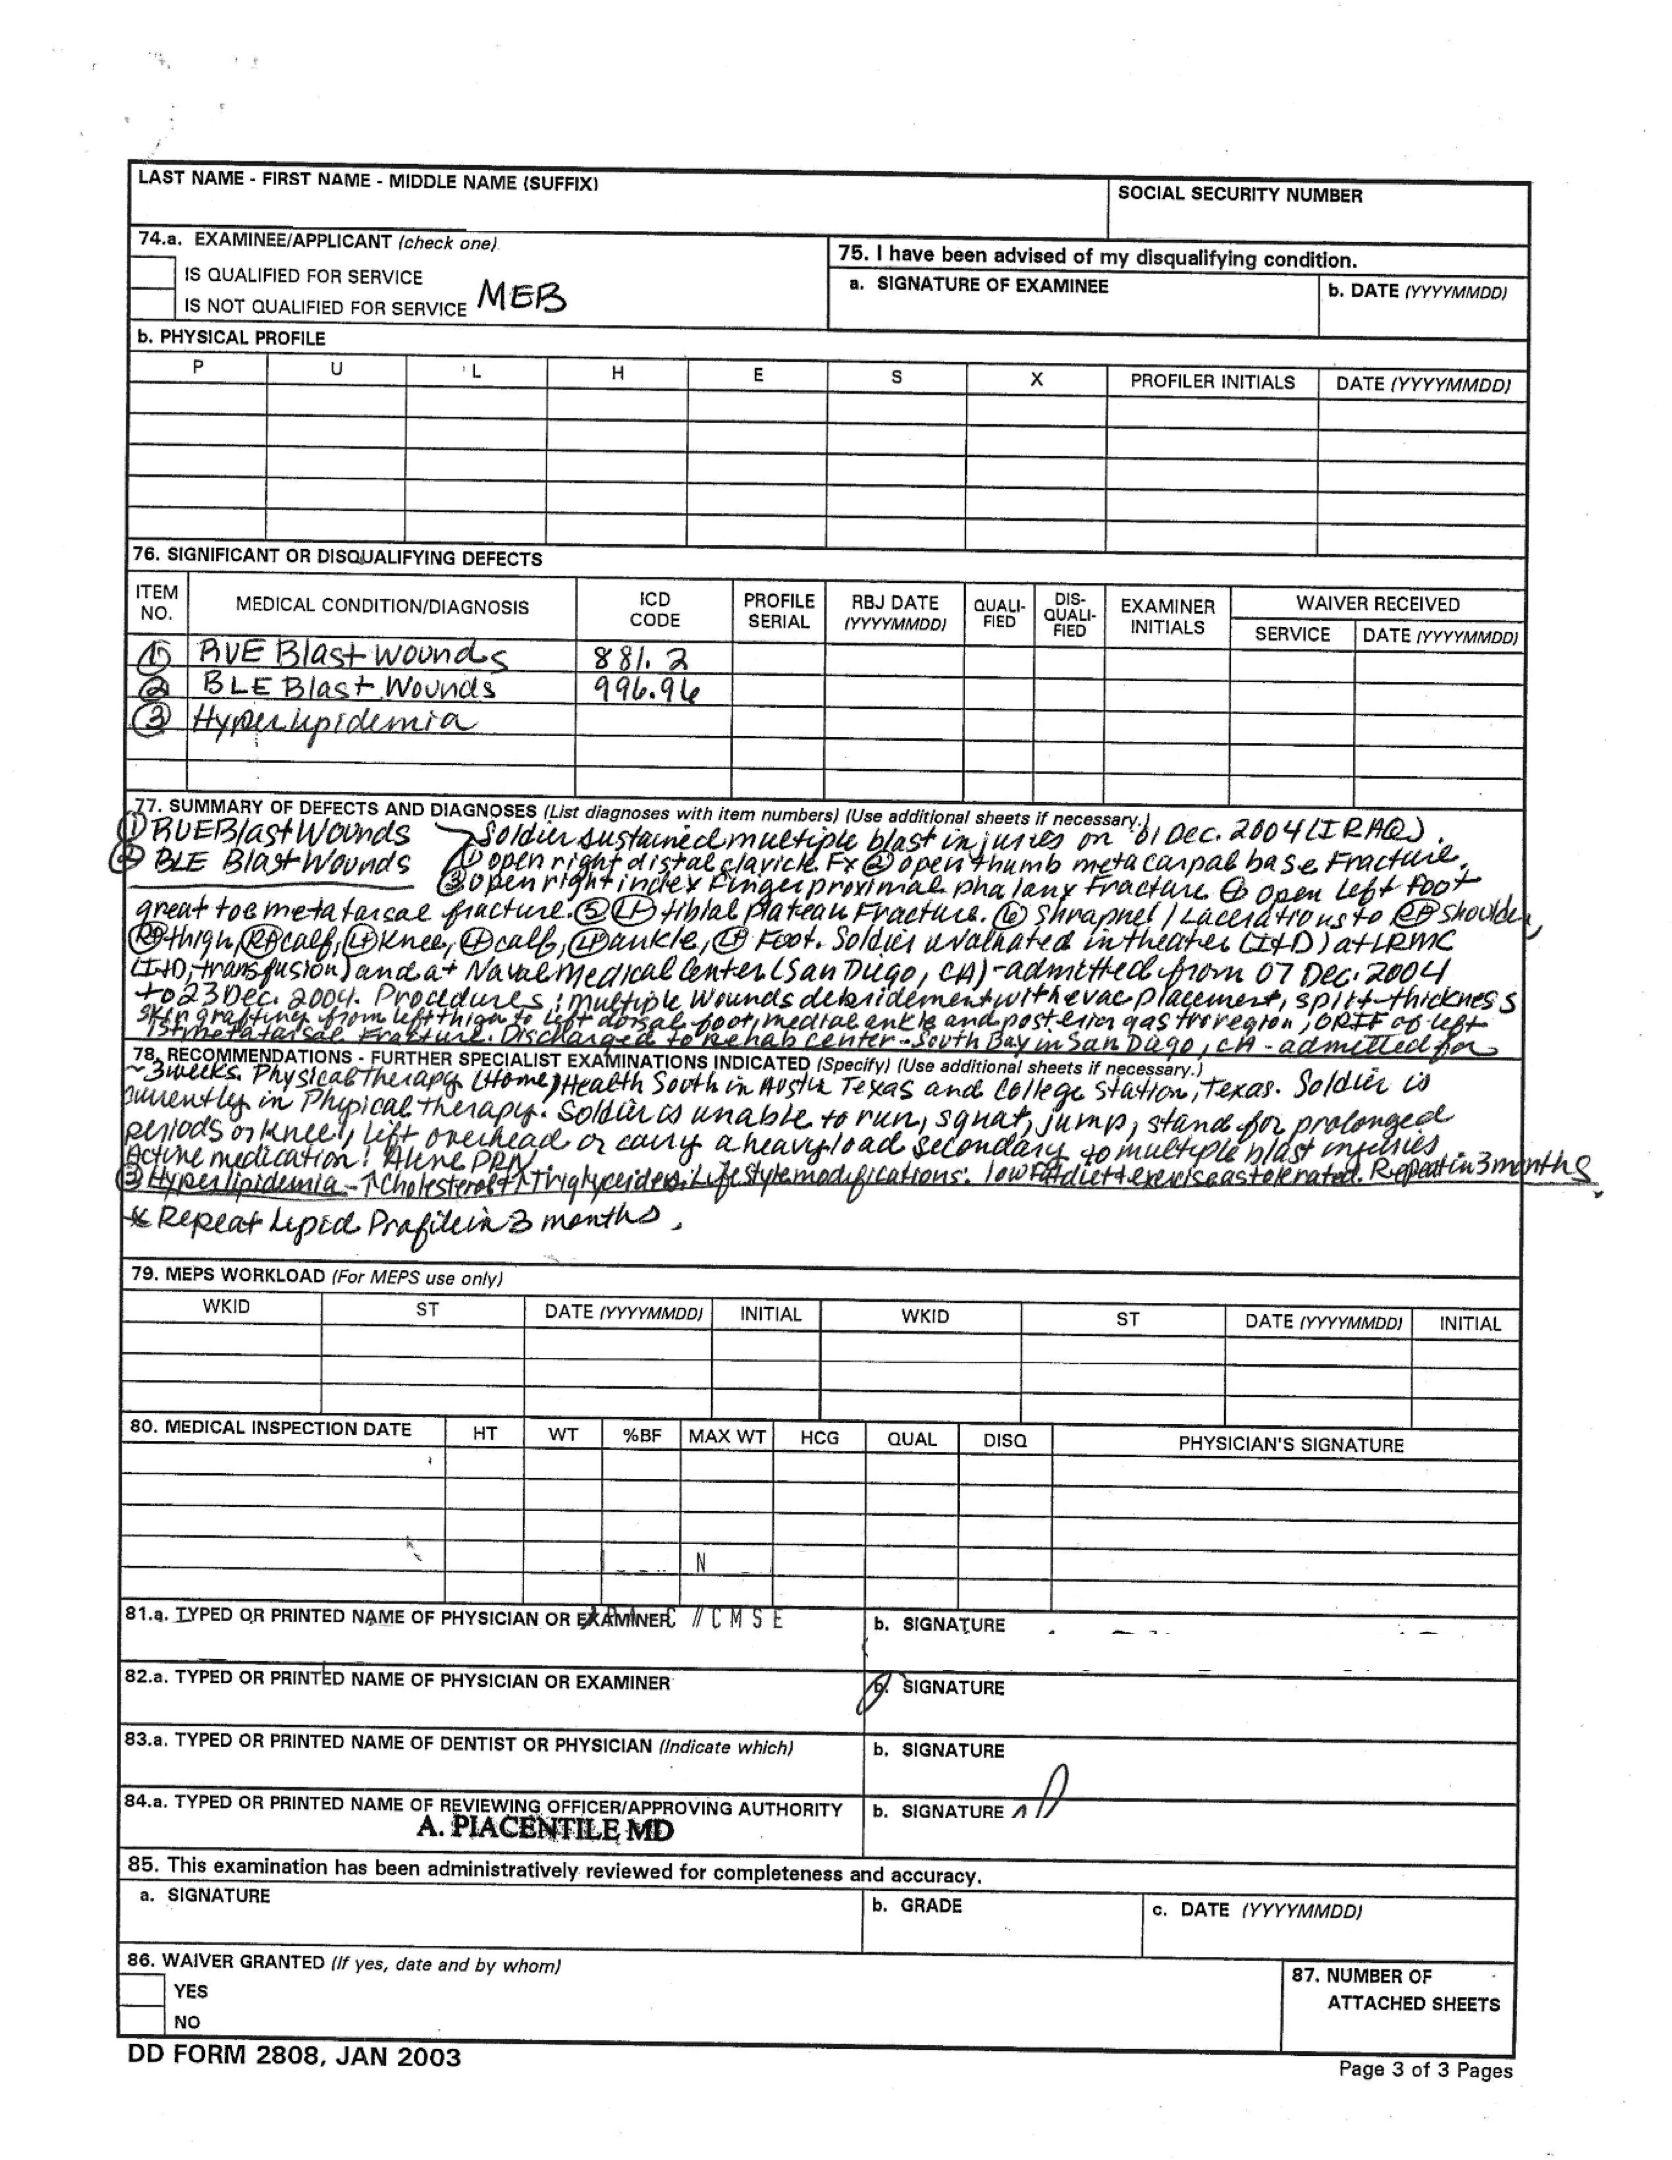 LAST NAME - FIRST NAME - MIDDLE NAME (SUFFIX)
SOCIAL SECURITY NUMBER
74.a. EXAMINEE/APPLICANT (check one)
IS QUALIFIED FOR SERVICE
IS NOT QUALIFIED FOR SERVICE MEB
75. I have been advised of my disqualifying condition.
a. SIGNATURE OF EXAMINEE
b. DATE (YYYYMMDD)
b. PHYSICAL PROFILE
P U L H E S X PROFILER INITIALS DATE (YYYYMMDD)
76. SIGNIFICANT OR DISQUALIFYING DEFECTS
ITEM NO. MEDICAL CONDITION/DIAGNOSIS ICD CODE PROFILE SERIAL RBJ DATE (YYYYMMDD) QUALI-FIED DIS-QUALI-FIED EXAMINER INITIALS WAIVER RECEIVED
SERVICE DATE (YYYYMMDD)
① RUE Blast Wounds 881.2
② BLE Blast Wounds 996.96
③ Hyperlipidemia
77. SUMMARY OF DEFECTS AND DIAGNOSES (List diagnoses with item numbers) (Use additional sheets if necessary.)
① RUE Blast Wounds Soldier sustained multiple blast injuries on 01 Dec. 2004 (IRAQ).
② BLE Blast Wounds ① open right distal clavicle Fx ② open thumb metacarpal base Fracture.
③ open right index finger proximal phalanx Fracture ④ open left foot
great toe metatarsal fracture. ⑤ Ⓛ tibial plateau Fracture. ⑥ shrapnel / Lacerations to Ⓡ shoulder,
Ⓡ thigh, Ⓡ calf, Ⓛ Knee, Ⓛ calf, Ⓛ ankle, Ⓛ Foot. Soldier evaluated in theater (I+D) at LRMC
(I+D, transfusion) and at Naval Medical Center (San Diego, CA) - admitted from 07 Dec. 2004
to 23 Dec. 2004. Procedures: multiple wounds debridement with evac placement, split-thickness
skin grafting from left thigh to left dorsal foot, medial ankle and posterior gastroregion, ORIF of left
1st metatarsal Fracture. Discharged to rehab center - South Bay in San Diego, CA - admitted for
78. RECOMMENDATIONS - FURTHER SPECIALIST EXAMINATIONS INDICATED (Specify) (Use additional sheets if necessary.)
~3weeks. Physical Therapy (Home) Health South in Austin Texas and College Station, Texas. Soldier is
currently in Physical therapy. Soldier is unable to run, squat, jump, stand for prolonged
periods or kneel, lift overhead or carry a heavy load secondary to multiple blast injuries
Active medication: Aleve PRN
③ Hyperlipidemia - ↑Cholesterol + ↑Triglycerides. Lifestyle modifications: low fat diet + exercise as tolerated. Repeat in 3 months
* Repeat Lipid Profile in 3 months.
79. MEPS WORKLOAD (For MEPS use only)
WKID ST DATE (YYYYMMDD) INITIAL WKID ST DATE (YYYYMMDD) INITIAL
80. MEDICAL INSPECTION DATE HT WT %BF MAX WT HCG QUAL DISQ PHYSICIAN'S SIGNATURE
N
81.a. TYPED OR PRINTED NAME OF PHYSICIAN OR EXAMINER
b. SIGNATURE
82.a. TYPED OR PRINTED NAME OF PHYSICIAN OR EXAMINER
b. SIGNATURE
83.a. TYPED OR PRINTED NAME OF DENTIST OR PHYSICIAN (Indicate which)
b. SIGNATURE
84.a. TYPED OR PRINTED NAME OF REVIEWING OFFICER/APPROVING AUTHORITY
b. SIGNATURE
A. PIACENTILE MD
85. This examination has been administratively reviewed for completeness and accuracy.
a. SIGNATURE
b. GRADE
c. DATE (YYYYMMDD)
86. WAIVER GRANTED (If yes, date and by whom)
YES
NO
87. NUMBER OF
ATTACHED SHEETS
DD FORM 2808, JAN 2003
Page 3 of 3 Pages